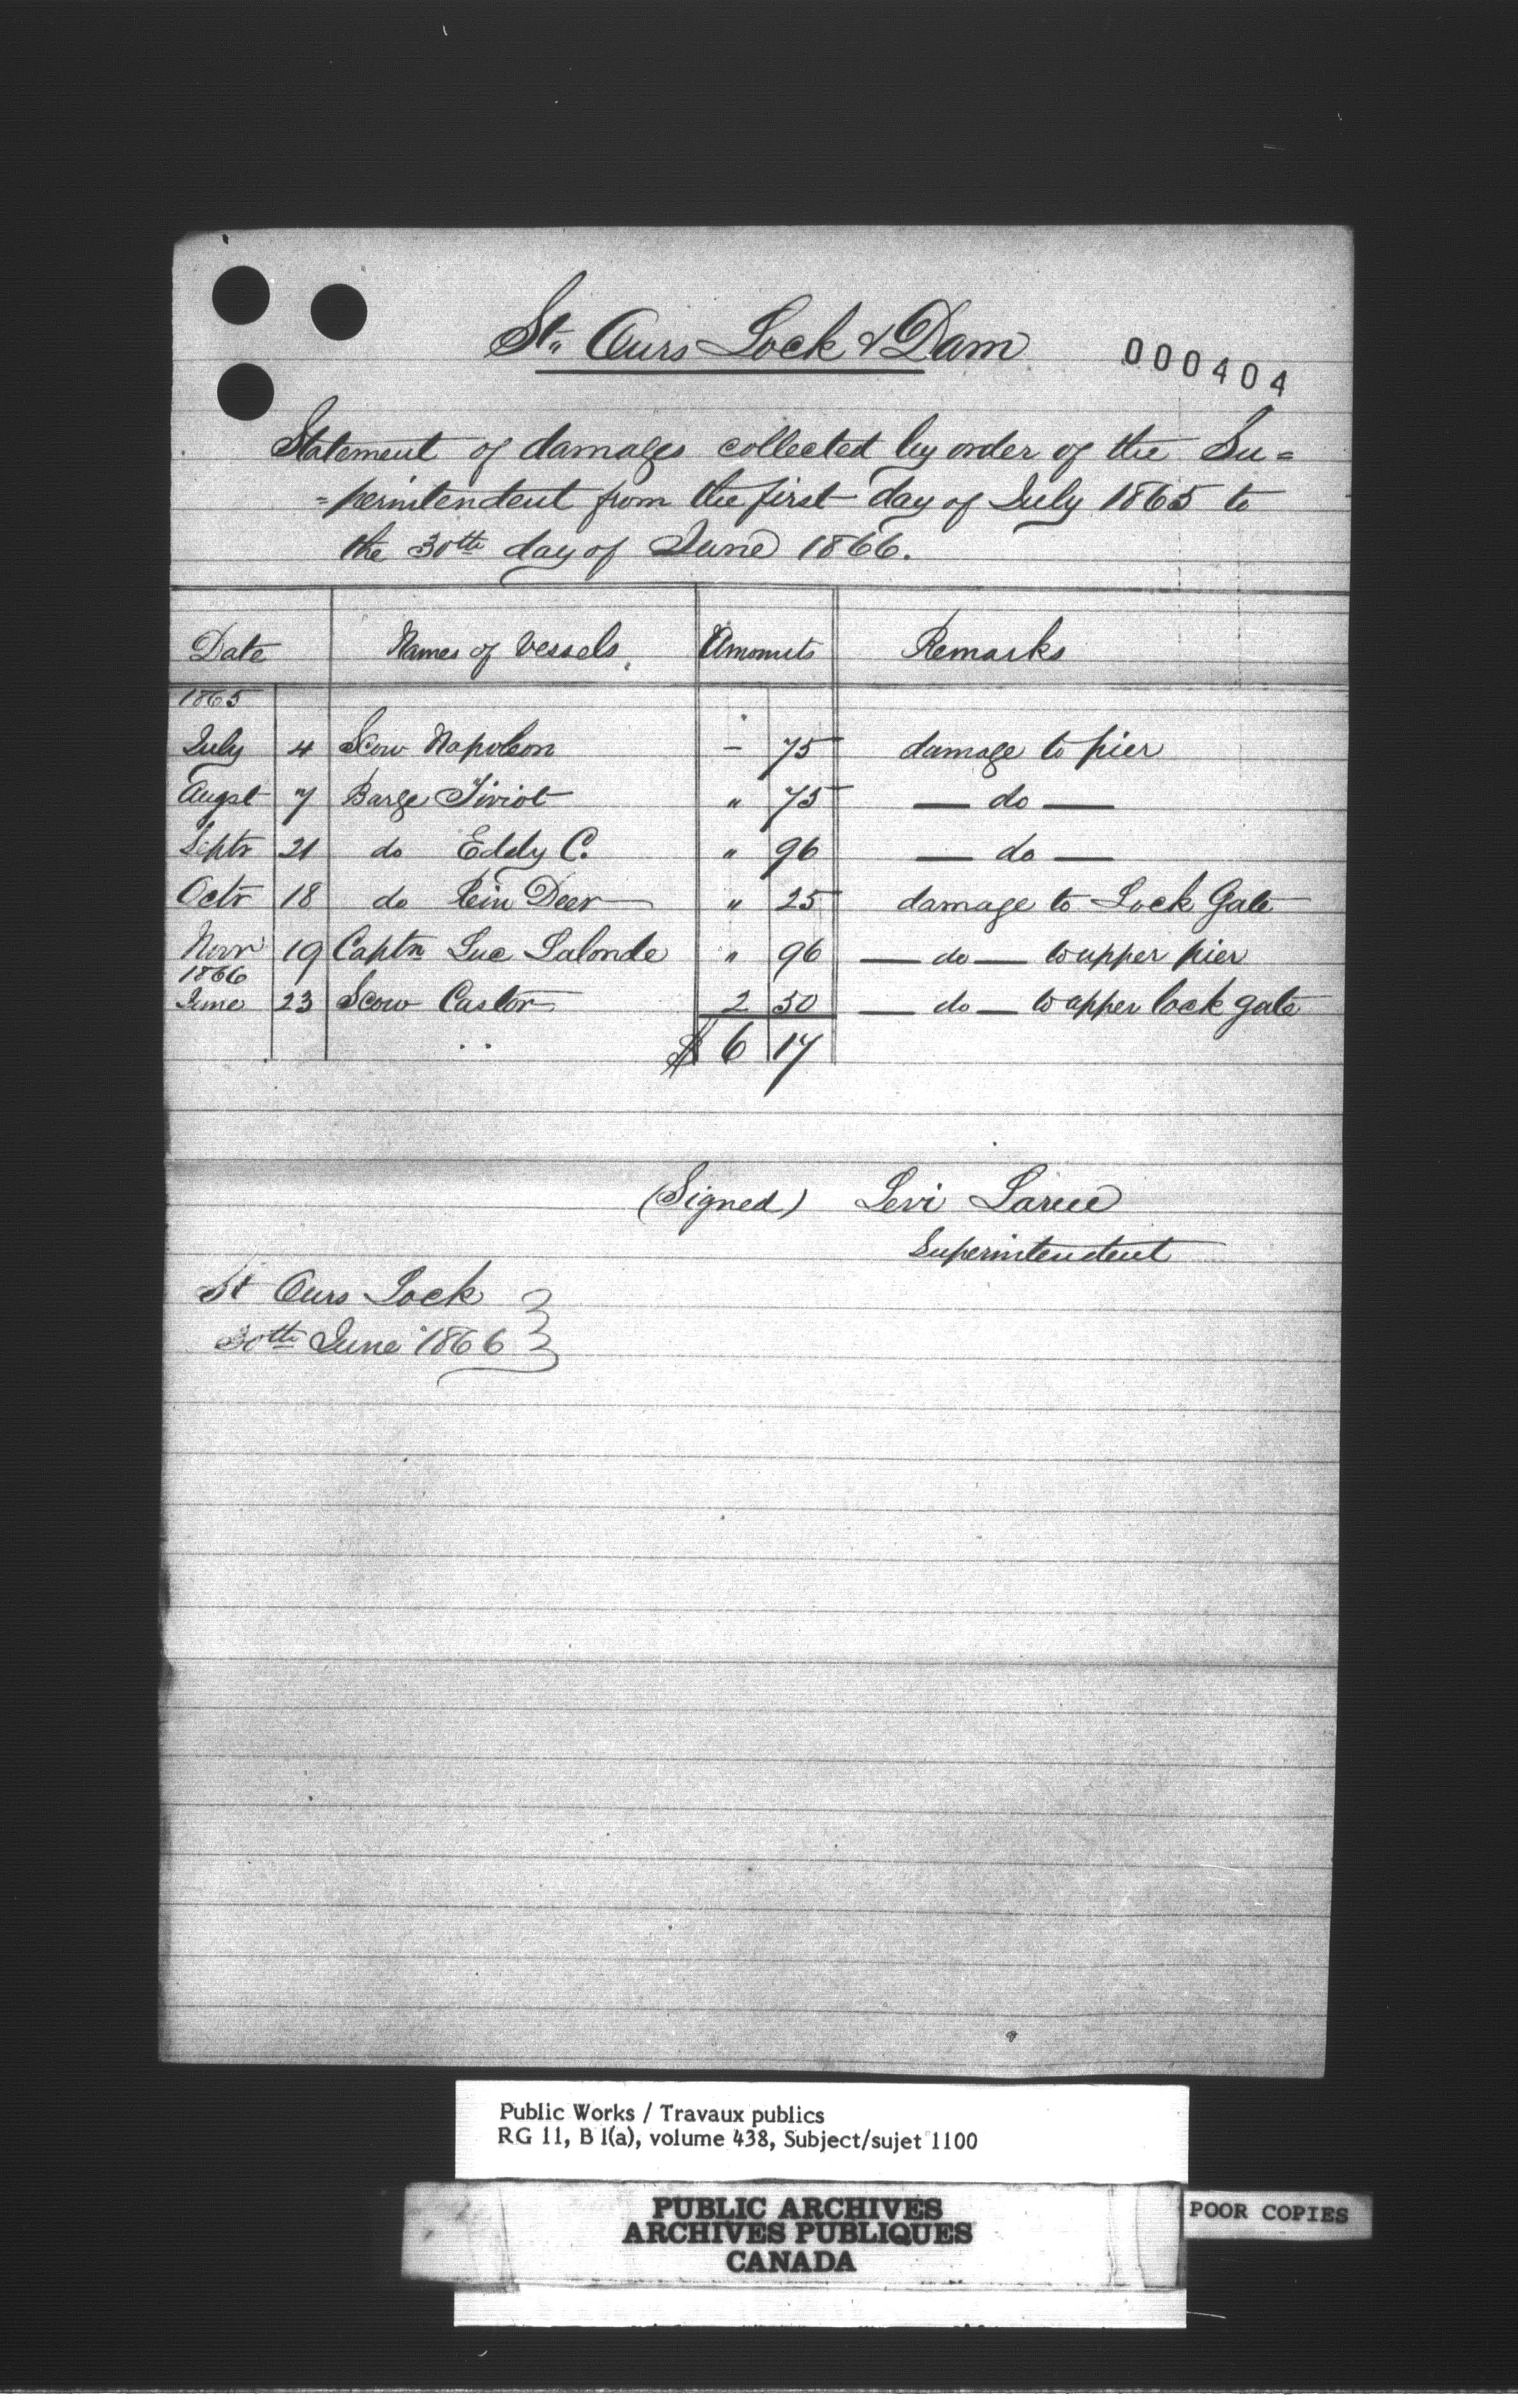 St. Ours Lock & Dam
000404
Statement of damages collected by order of the Su=
=perintendent from the first day of July 1865 to
the 30th day of June 1866.
Date Names of vessels Amounts Remarks
1865
July 4 Scow Napoleon – 75 damage to pier
Augst 7 Barge Tiviot " 75 — do —
Septr 21 do Eddy C. " 96 — do —
Octr 18 do Rein Deer " 25 damage to Lock Gate
Novr 19 Captn Luc Lalonde " 96 — do — to upper pier
1866
June 23 Scow Castor 2 50 — do — to upper lock gate
$ 6 17
(Signed) Levi Larue
Superintendent
St Ours Lock
30th June 1866
Public Works / Travaux publics
RG 11, B 1(a), volume 438, Subject/sujet 1100
PUBLIC ARCHIVES
ARCHIVES PUBLIQUES
CANADA
POOR COPIES